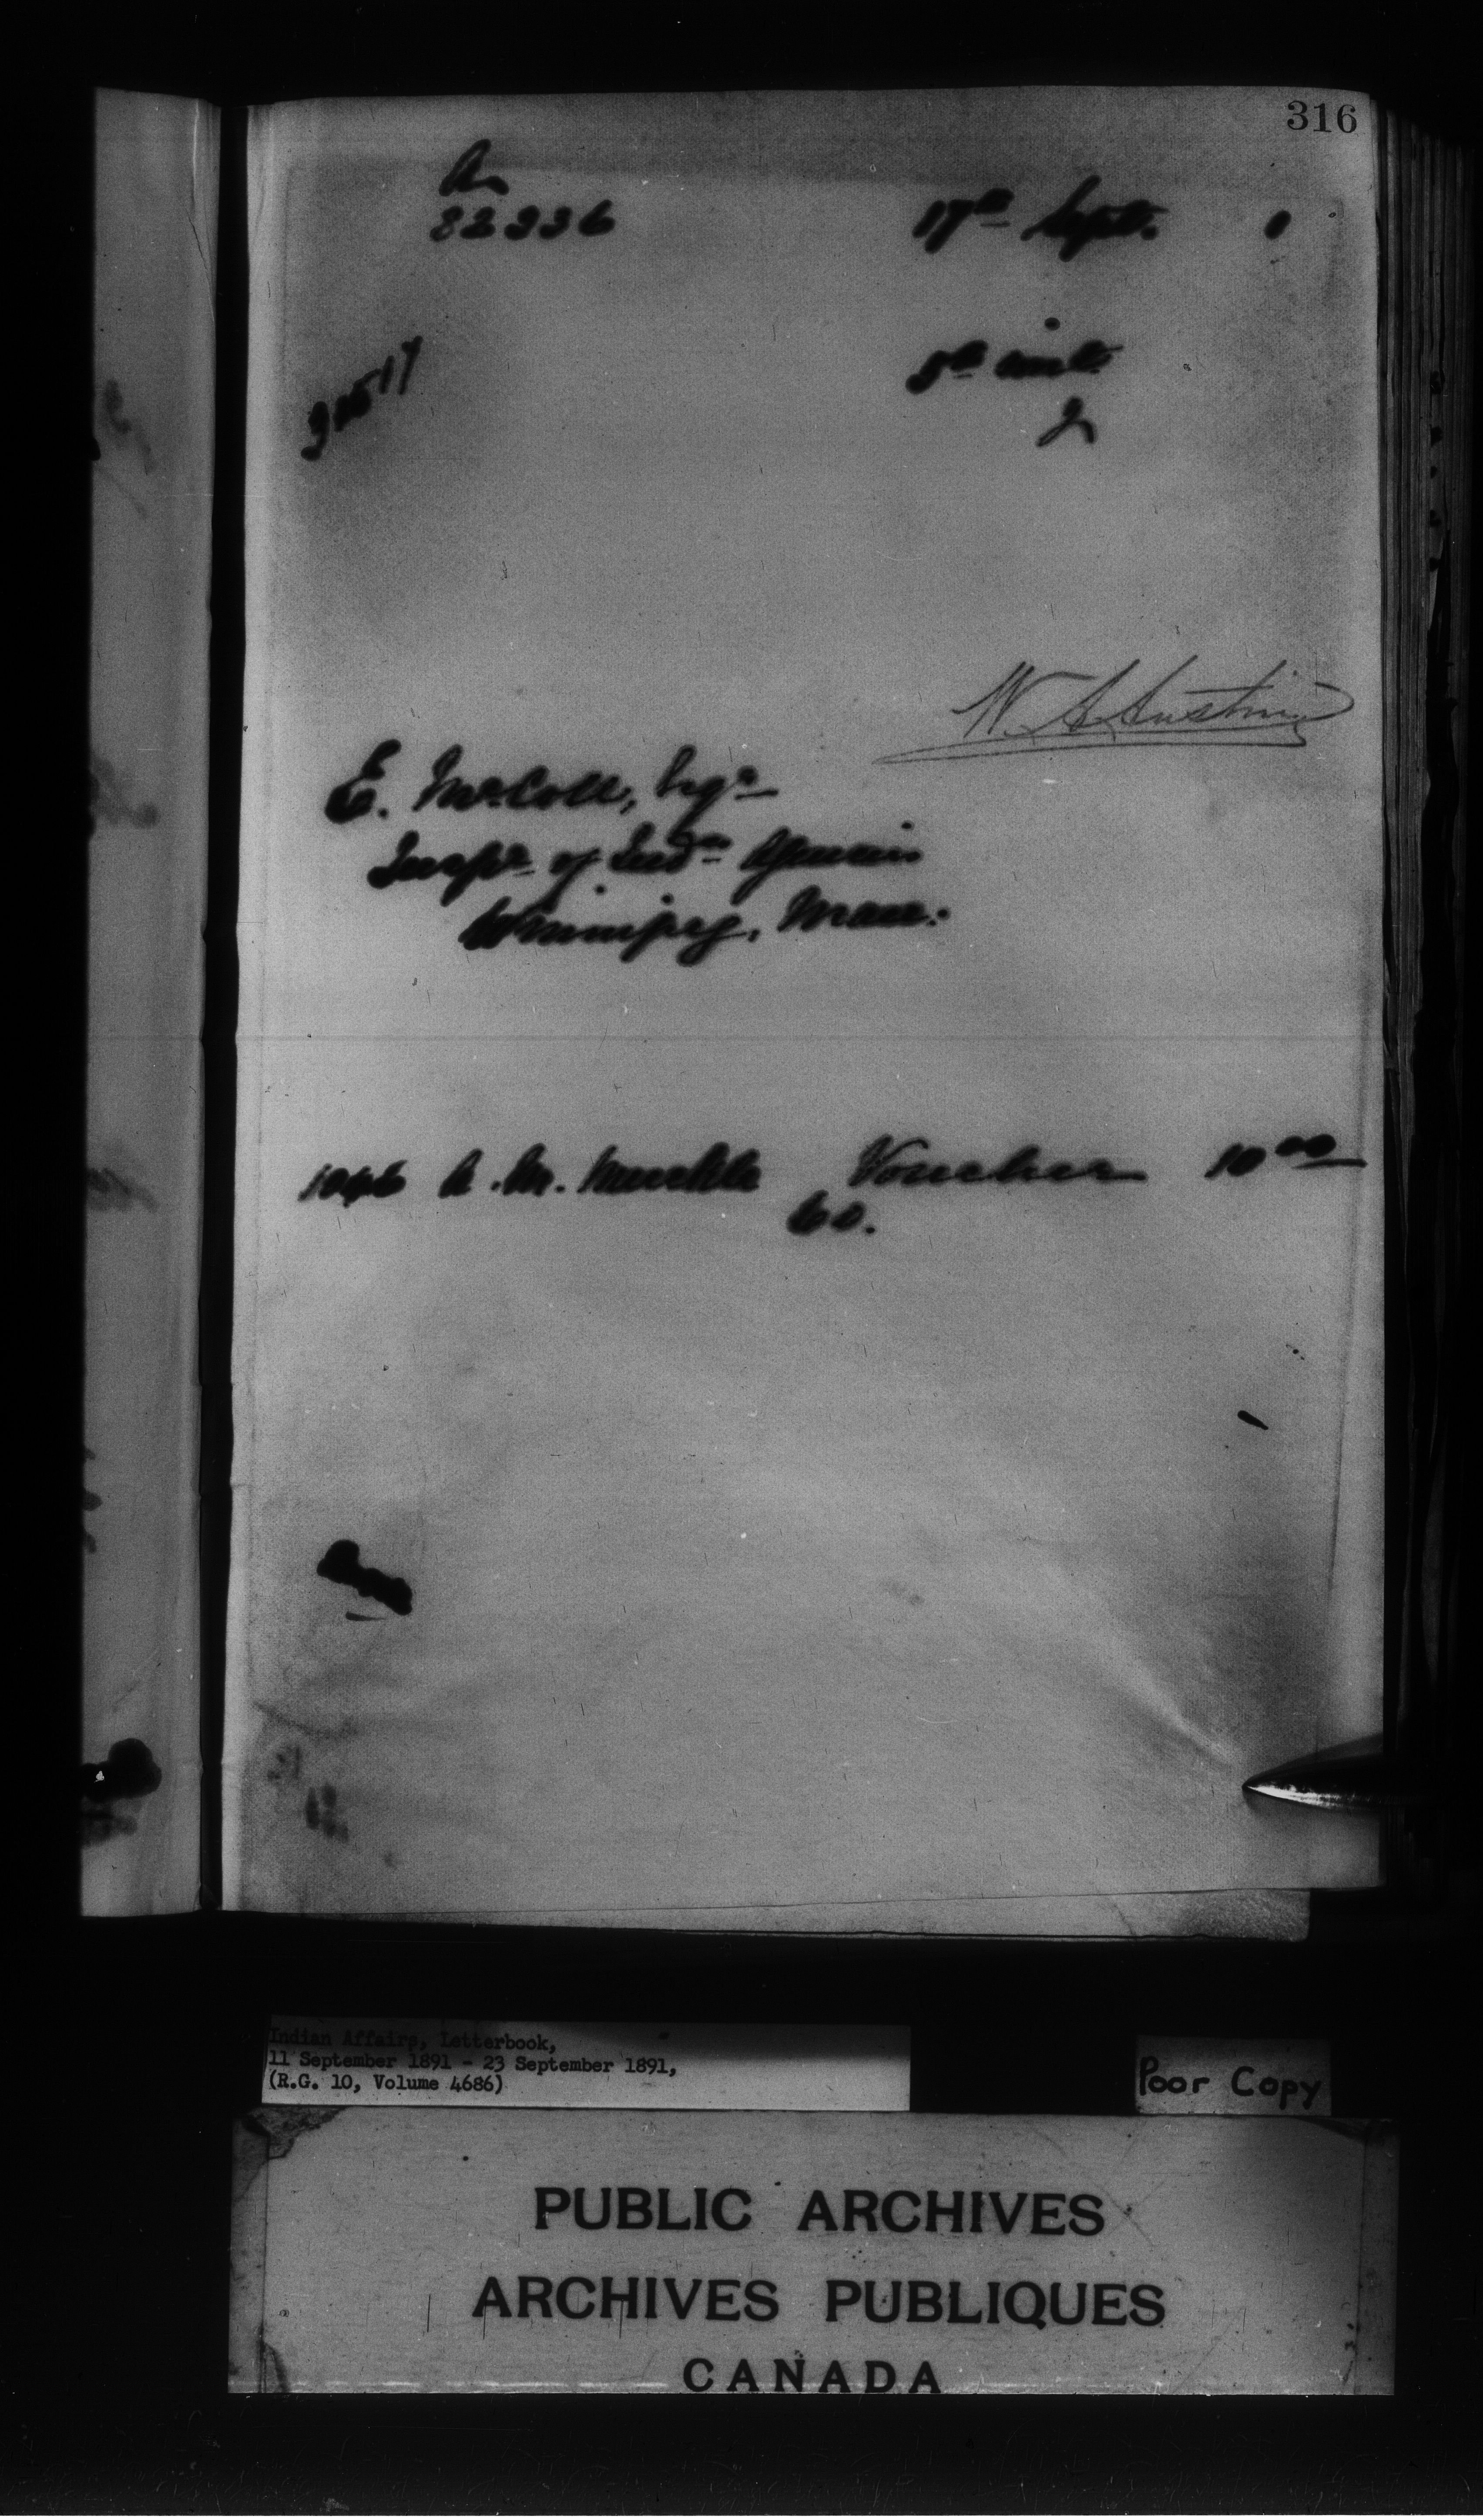 316
A
82336
17th Sept. 1
5th inst.
2
W. A. Austin
E. McColl, Esqr
Inspr of Indn Agencies
Winnipeg, Man.
1046 A. M. Muckle Voucher 10 00
60.
Indian Affairs, Letterbook,
11 September 1891 - 23 September 1891,
(R.G. 10, Volume 4686)
Poor Copy
PUBLIC ARCHIVES
ARCHIVES PUBLIQUES
CANADA